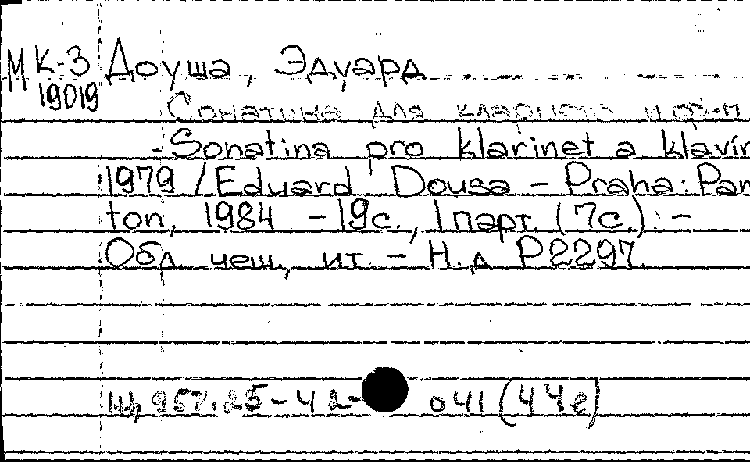 МК-3 Доуша, Эдуард
19019
Сонатина для кларнета и ф-п
- Sonatina pro klarinet a klavír
1979 / Eduard Dousa - Praha: Pan
ton, 1984 - 19с., 1 парт. (7с.) -
Обл. чеш., ит. - Н.д. P2297
Щ957.25-42- 041 (44е)